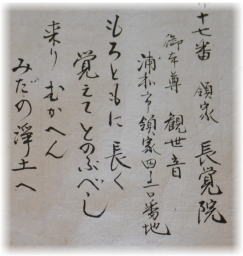 十七番 領家 長覚院
御本尊 観世音
浦和市領家四一口番地
もろともに 長く
覚えて とのふべし
来り むかへん
みだの浄土へ